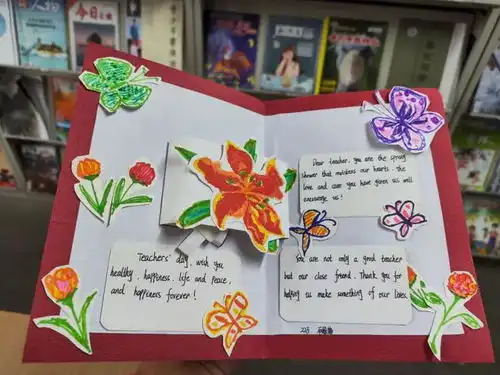 Dear teacher, you are the spring
shower that moistens our hearts. The
love and care you have given us will
encourage us!
Teachers' day, wish you
healthy, happiness, life and peace,
and happiness forever!
You are not only a good teacher
but our close friend. Thank you for
helping us make something of our lives.